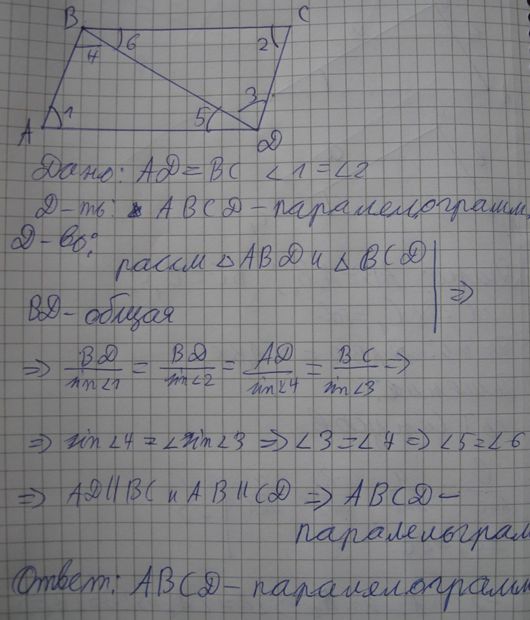 B C
6 2
4
1 5 3
A D
Дано: AD = BC ∠1 = ∠2
Д-ть: ABCD - паралелограмм
Д-во:
рассм △ABD и △BCD
BD - общая ⇒
⇒ BD/sin∠1 = BD/sin∠2 = AD/sin∠4 = BC/sin∠3 ⇒
⇒ sin∠4 = ∠sin∠3 ⇒ ∠3 = ∠4 ⇒ ∠5 = ∠6
⇒ AD ∥ BC и AB ∥ CD ⇒ ABCD -
паралельграм
Ответ: ABCD - паралялограмм